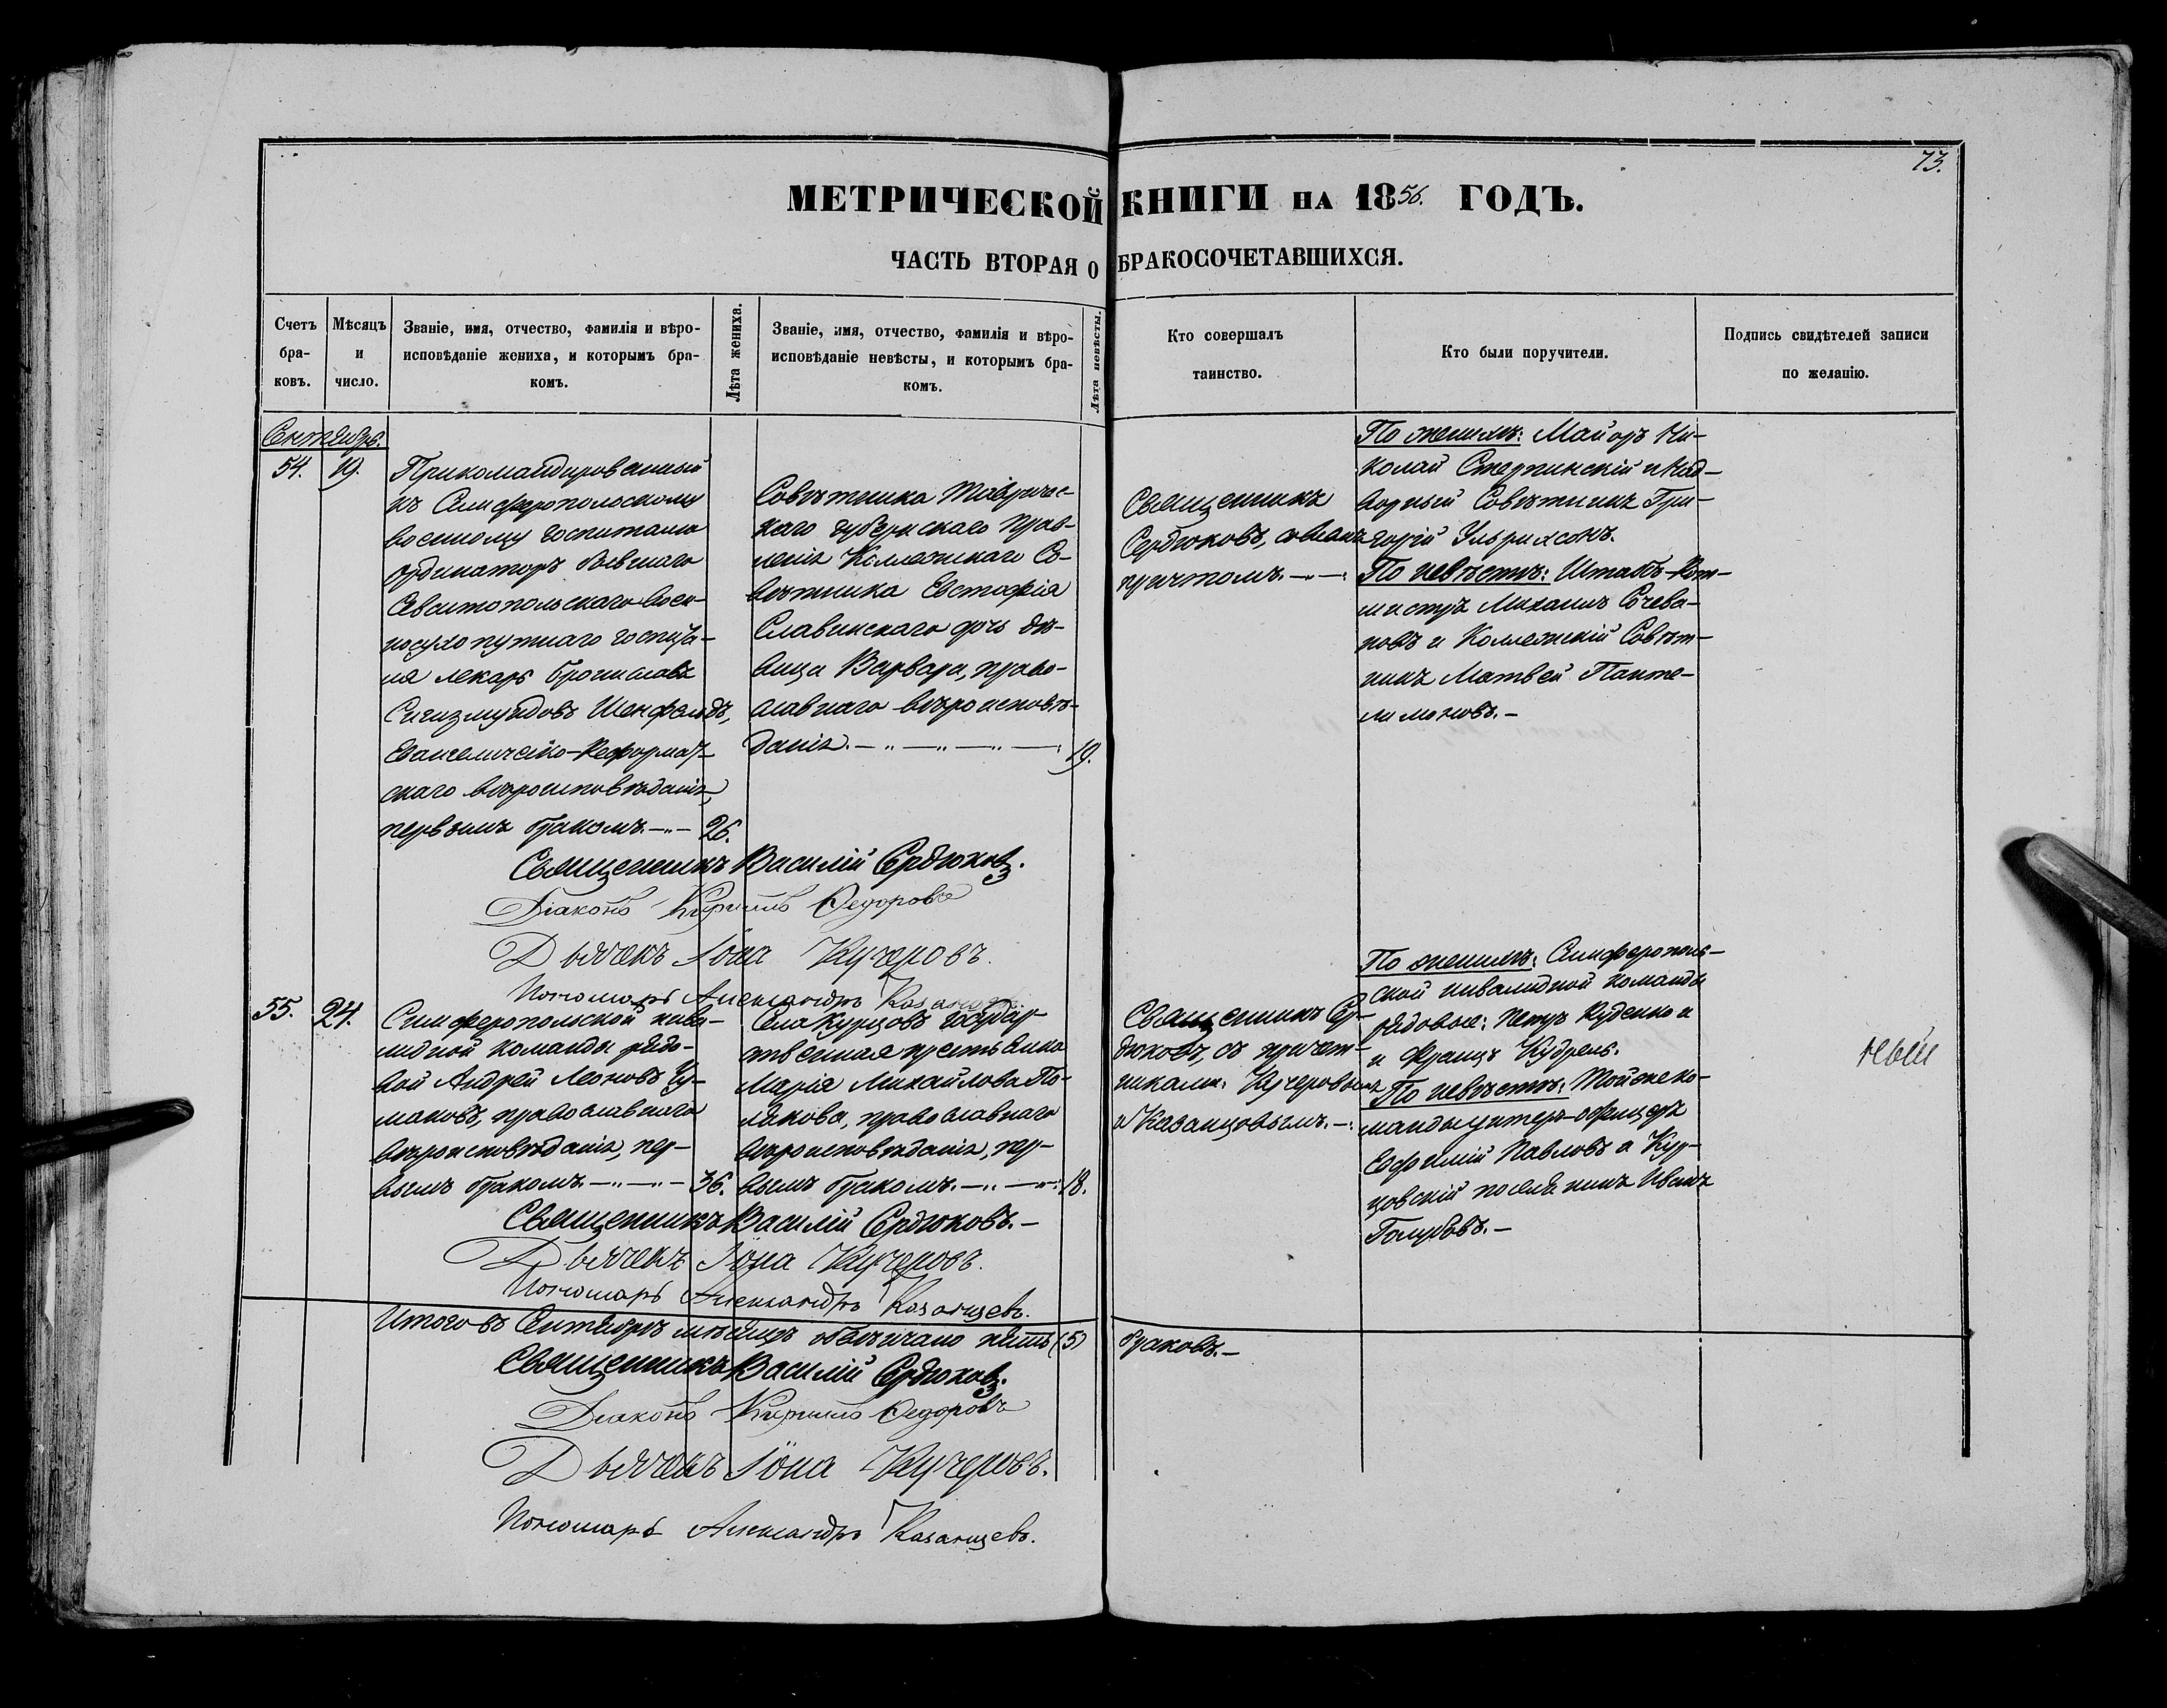 73.
МЕТРИЧЕСКОЙ КНИГИ НА 1856. ГОДЪ.
ЧАСТЬ ВТОРАЯ О БРАКОСОЧЕТАВШИХСЯ.
Счетъ бра-ковъ.
Мѣсяцъ и число.
Званіе, имя, отчество, фамилія и вѣро-
исповѣданіе жениха, и которымъ бра-
комъ.
Лѣта жениха.
Званіе, имя, отчество, фамилія и вѣро-
исповѣданіе невѣсты, и которымъ бра-
комъ.
Лѣта невѣсты.
Кто совершалъ
таинство.
Кто были поручители.
Подпись свидѣтелей записи
по желанію.
Сентябрь.
54. 19.
Прикомандированный
къ Симферопольскому
военному госпиталю
ординаторъ бывшаго
Севастопольскаго воен-
носухопутнаго госпита-
ля лекарь Брониславъ
Сигизмундовъ Шенфельдъ,
Евангелическо-Реформат-
скаго вѣроисповѣданія,
первымъ бракомъ. 26.
Совѣтника Тавричес-
каго губернскаго прав-
ленія Коллежскаго Со-
вѣтника Евстафія
Славинскаго дочь дѣ-
вица Варвара, право-
славнаго вѣроисповѣ-
данія. 19.
Священникъ
Сердюковъ, со всемъ
причтомъ.
По женихѣ: Майоръ Ни-
колай Стерпинскій и Над-
ворный Совѣтникъ Гри-
горій Ульрихсонъ.
По невѣстѣ: Штабъ-Рот-
мистръ Михаилъ Сочева-
новъ и Коллежскій Совѣт-
никъ Матвей Панте-
лимоновъ.
Священникъ Василій Сердюковъ.
Діаконъ Кириллъ Федоровъ
Дьячекъ Іона Кучеровъ.
Пономарь Александръ Казанцевъ
55. 24.
Симферопольской инва-
лидной команды рядо-
вой Андрей Леоновъ Чу-
маковъ, православнаго
вѣроисповѣданія, пер-
вымъ бракомъ. 36.
Села Курцовъ государ-
ственная крестьянка
Марія Михайлова По-
лякова, православнаго
вѣроисповѣданія, пер-
вымъ бракомъ. 18.
Священникъ Сер-
дюковъ, съ причет-
никами: Кучеровымъ
и Казанцовымъ.
По женихѣ: Симферополь-
ской инвалидной команды
рядовые: Петръ Руденко и
и Францъ Кудрель.
По невѣстѣ: Той же ко-
манды унтеръ-офицеръ
Ефимій Павловъ и Кур-
цовскій поселянинъ Иванъ
Голубовъ.
Священникъ Василій Сердюковъ.
Дьячекъ Іона Кучеровъ.
Пономарь Александръ Казанцевъ.
Итого въ Сентябрѣ мѣсяцѣ обвѣнчано пять (5) браковъ.
Священникъ Василій Сердюковъ.
Діаконъ Кириллъ Федоровъ
Дьячекъ Іона Кучеровъ.
Пономарь Александръ Казанцевъ.